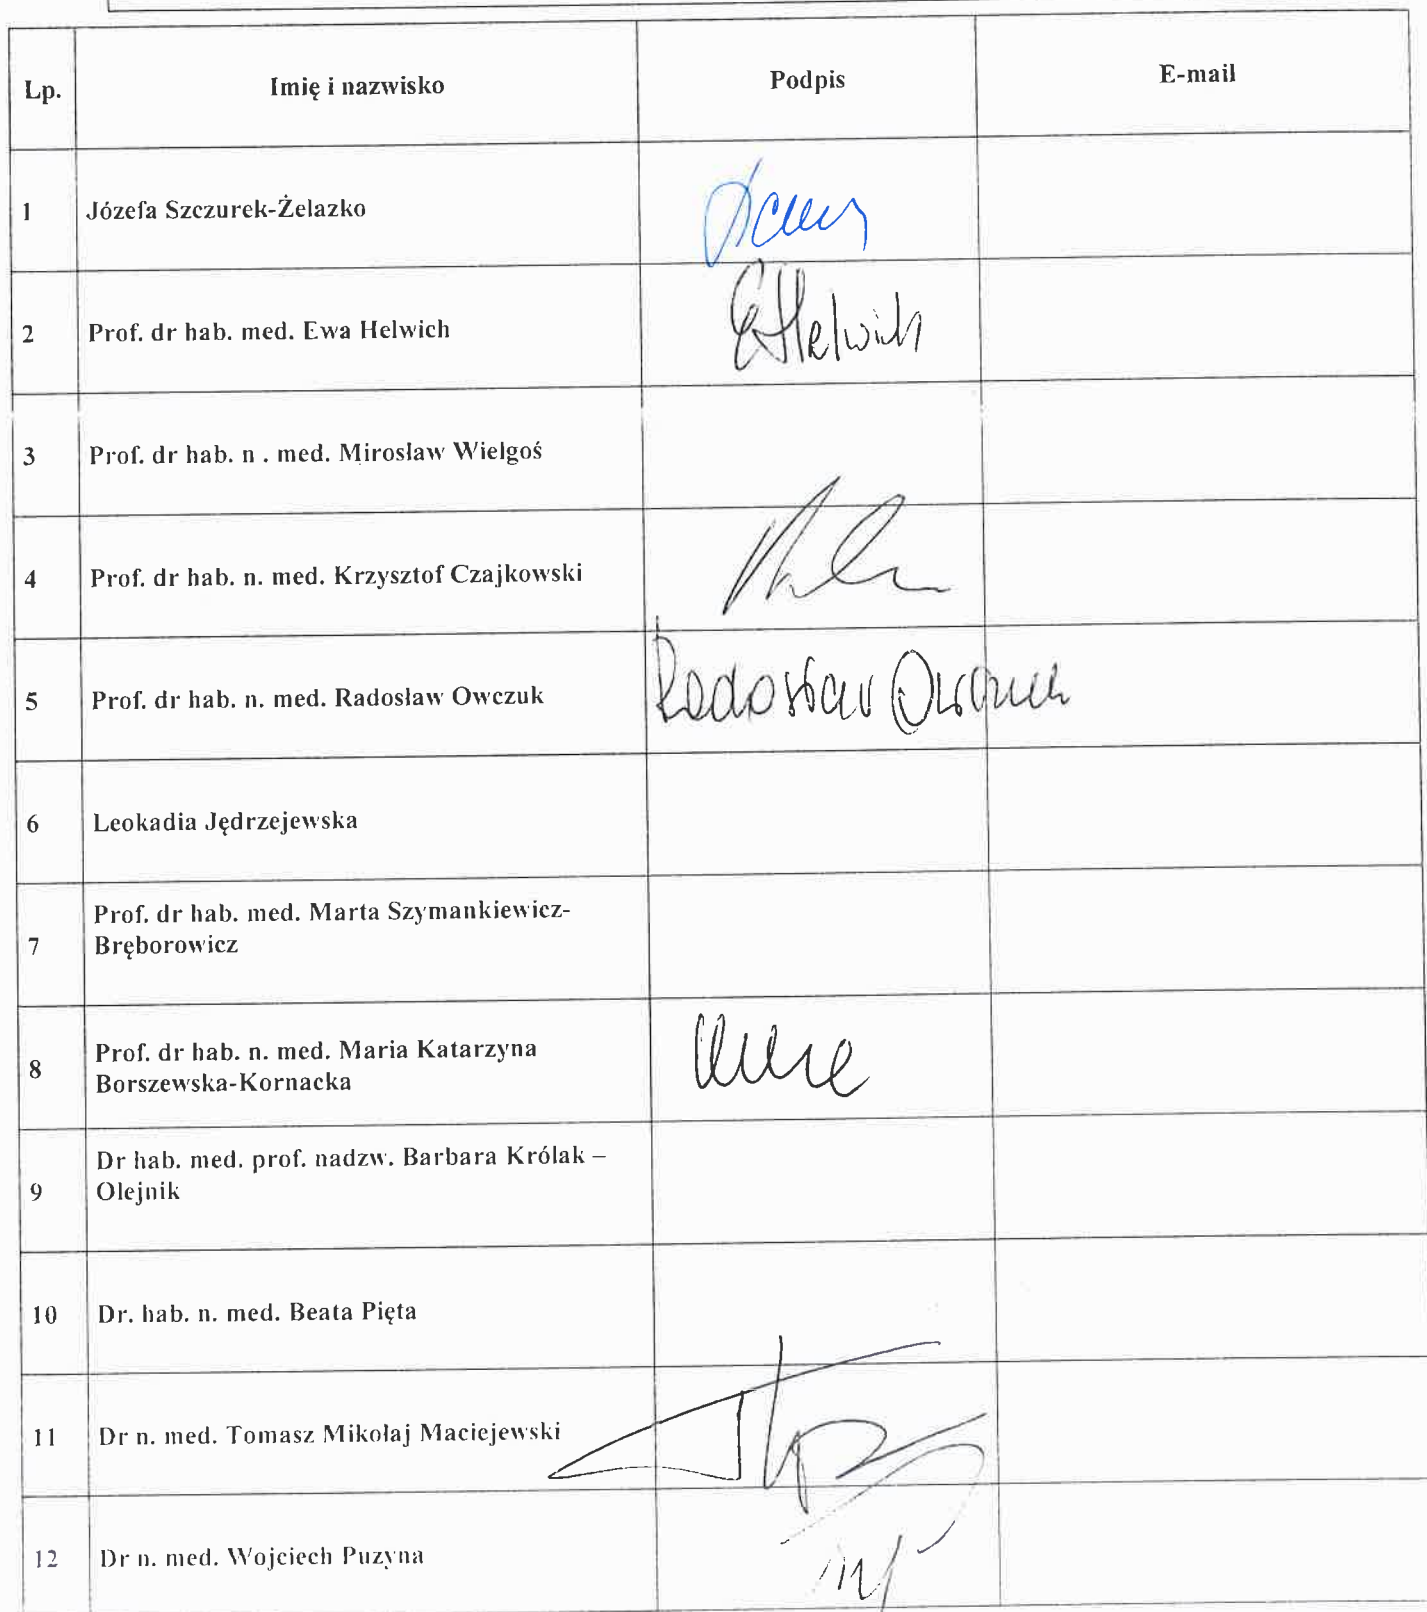 Lp. Imię i nazwisko Podpis E-mail
1 Józefa Szczurek-Żelazko
2 Prof. dr hab. med. Ewa Helwich EHelwich
3 Prof. dr hab. n . med. Mirosław Wielgoś
4 Prof. dr hab. n. med. Krzysztof Czajkowski
5 Prof. dr hab. n. med. Radosław Owczuk Radosław Owczuk
6 Leokadia Jędrzejewska
Prof. dr hab. med. Marta Szymankiewicz-
7 Bręborowicz
Prof. dr hab. n. med. Maria Katarzyna
8 Borszewska-Kornacka
Dr hab. med. prof. nadzw. Barbara Królak –
9 Olejnik
10 Dr. hab. n. med. Beata Pięta
11 Dr n. med. Tomasz Mikołaj Maciejewski
12 Dr n. med. Wojciech Puzyna